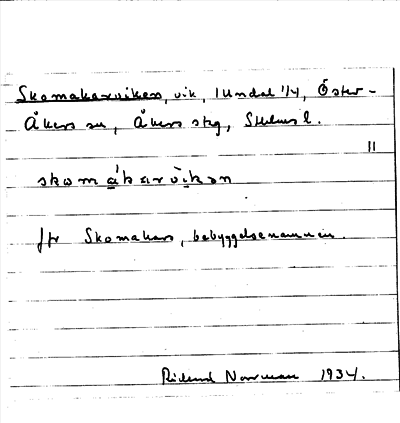 Skomakarviken, vik, 1 Undal 1/4, Öster-
Åkers sn, Åkers skg, Sthlms l.
"
skomákarvìkən
Jfr Skomakars, bebyggelsenamnen.
Rickard Norrman 1934.